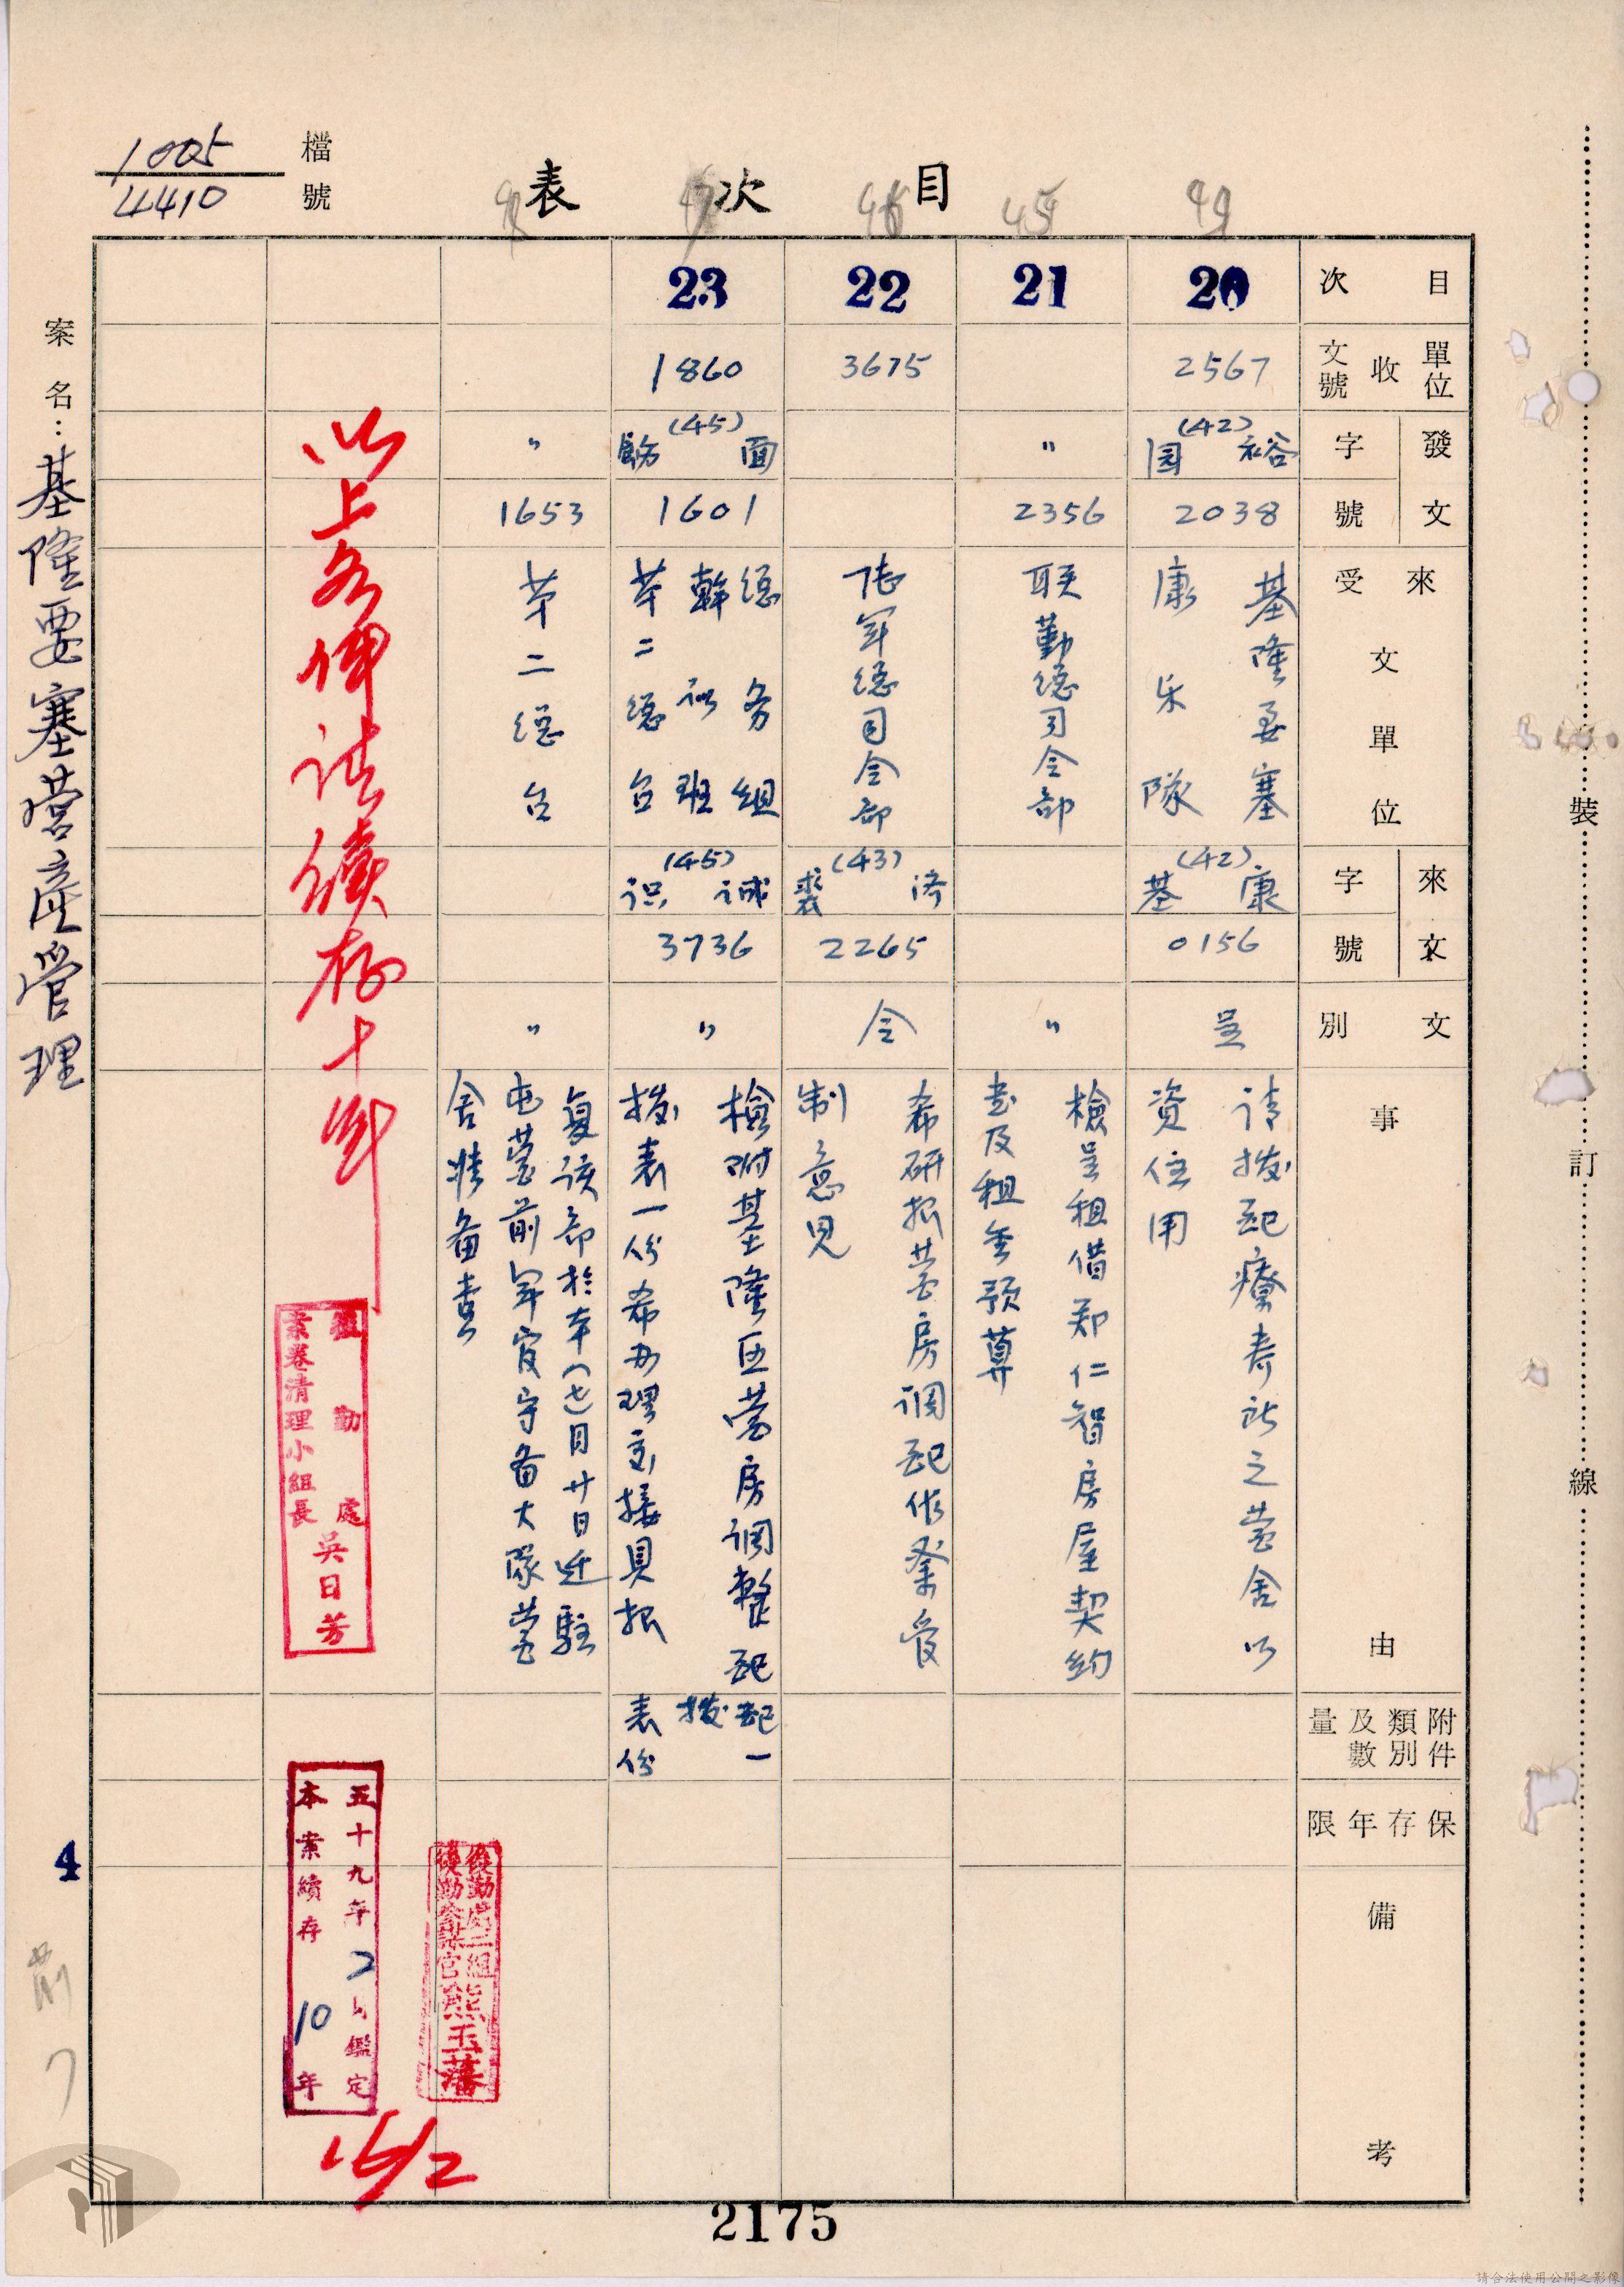 檔號
1005
4410
目次表
案名：基隆要塞營產管理
目次
單位收文號
發文
字
號
來受文單位
來文
字
號
文別
事由
附件類別及數量
保存年限
備考
20
2567
(42)
2038
基隆要塞
康乐隊
(42)
康基
0156
呈
请拨配療养所之营舍以
資住用
21
〃
2356
联勤總司令部
〃
檢呈租借郑仁智房屋契約
書及租金預算
22
3675
陆軍總司令部
(43)
2265
令
希研拟营房调配作業
制意見
23
1860
(45)
1601
總务組
幹训班
第二總台
(45)
诚识
3736
〃
檢附基隆区营房调整配
拨表一份希办理交接具报
配拨表一份
〃
1653
第二總台
〃
复该部於本(七)月廿日迁駐
屯营前軍官守备大隊营
舍准备查
以上各件请續存十年
後勤處
案卷清理小組長
吳日芳
五十九年2月鑑定
本案續存10年
後勤處二組
後勤參謀官熊玉藩
16/2
4
2175
裝
訂
線
請合法使用公開之影像